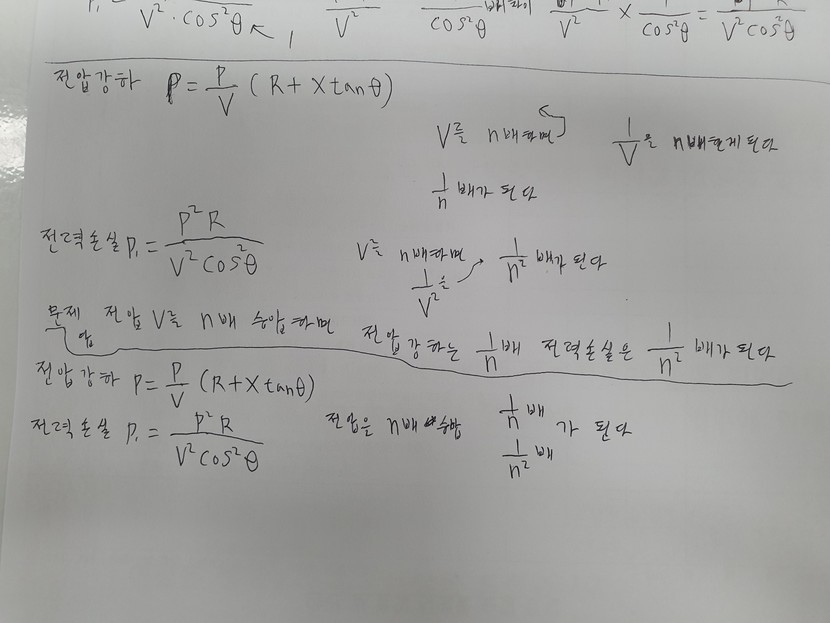 V²·cos²θ , V² cos²θ V² × 1/cos²θ = V²cos²θ
전압강하 P = P/V (R + X tanθ)
V를 n배하면 1/V을 n배한게 된다
1/n 배가 된다
전력손실 P₁ = P²R / V²cos²θ
V를 n배하면 1/V²을 → 1/n² 배가 된다
문제 전압 V를 n배 승압하면 전압강하는 1/n배 전력손실은 1/n² 배가 된다
답
전압강하 P = P/V (R+X tanθ)
전력손실 P₁ = P²R / V²cos²θ 전압을 n배 승압 1/n 배 1/n² 배 가 된다